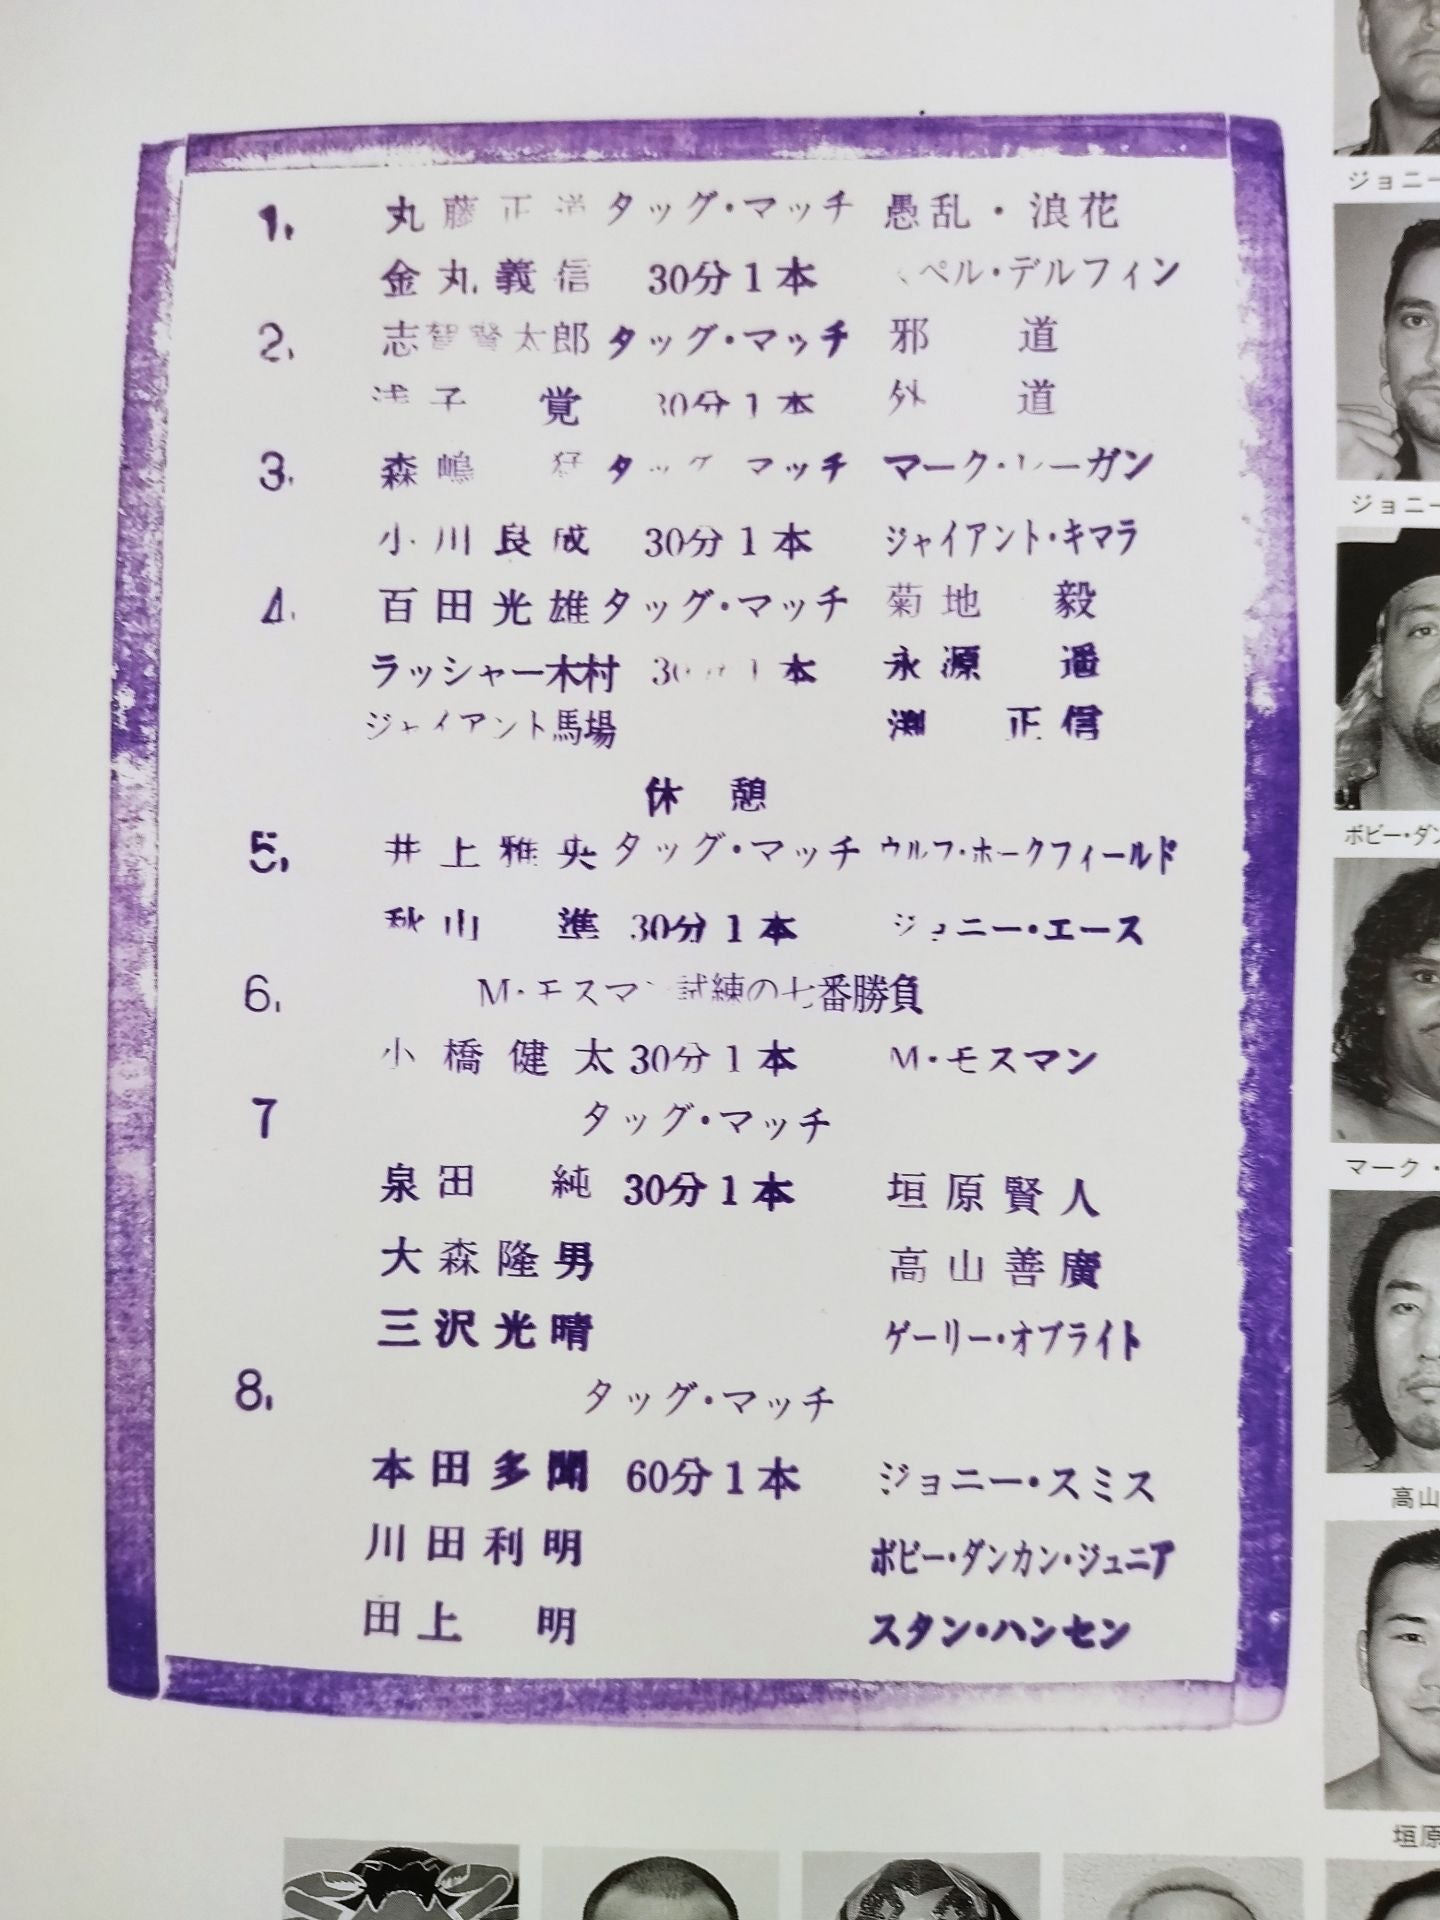 1. 丸藤正道 タッグ・マッチ 愚乱・浪花
金丸義信 30分1本 スペル・デルフィン
2. 志賀賢太郎 タッグ・マッチ 邪道
浅子覚 30分1本 外道
3. 森嶋猛 タッグ・マッチ マーク・レーガン
小川良成 30分1本 ジャイアント・キマラ
4. 百田光雄 タッグ・マッチ 菊地毅
ラッシャー木村 30分1本 永源遥
ジャイアント馬場 渕正信
休憩
5. 井上雅央 タッグ・マッチ ウルフ・ホークフィールド
秋山準 30分1本 ジョニー・エース
6. M・モスマン試練の七番勝負
小橋健太 30分1本 M・モスマン
7 タッグ・マッチ
泉田純 30分1本 垣原賢人
大森隆男 高山善廣
三沢光晴 ゲーリー・オブライト
8. タッグ・マッチ
本田多聞 60分1本 ジョニー・スミス
川田利明 ボビー・ダンカン・ジュニア
田上明 スタン・ハンセン
ジョニー
ジョニー
ボビー・ダン
マーク・
高山
垣原